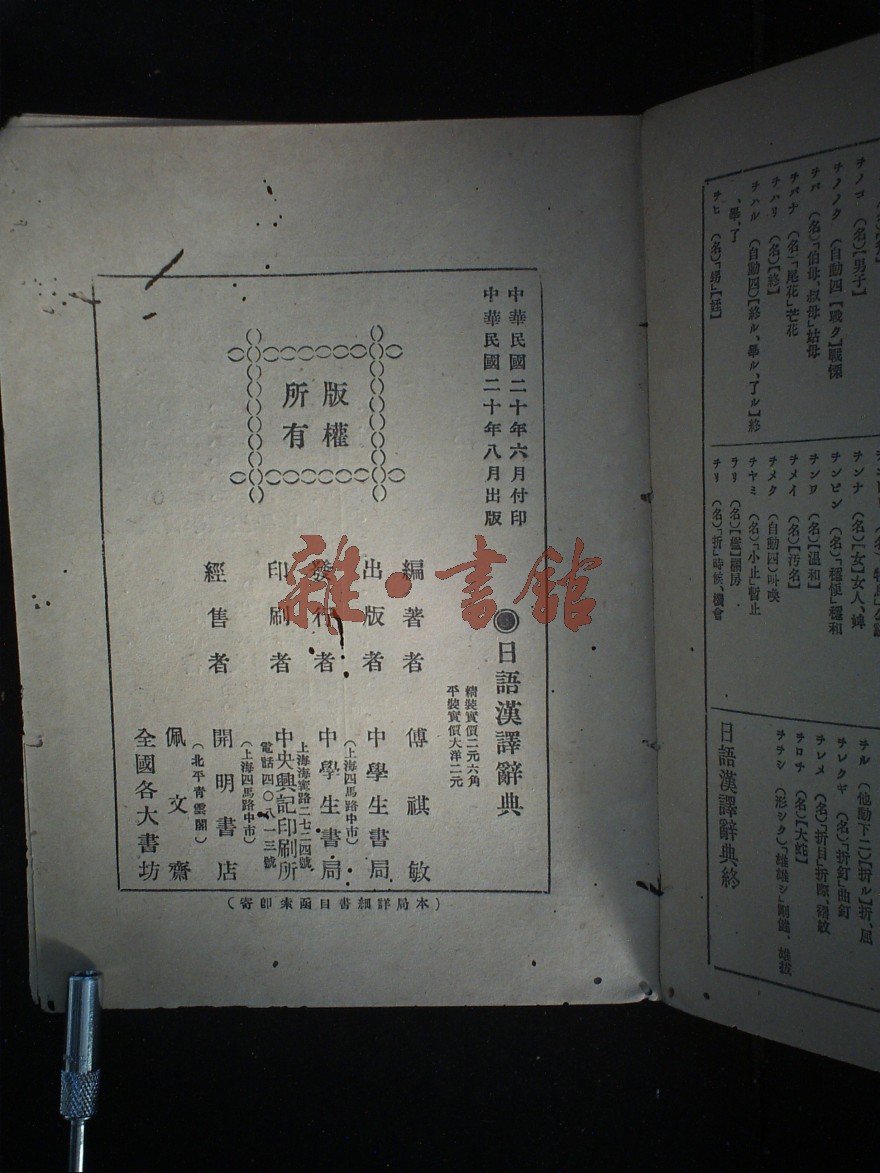 ヲノコ (名)【男子】
ヲノノク (自動四)【戰ク】戰慄
ヲバ (名)「伯母、叔母」姑母
ヲバナ (名)「尾花」芒花
ヲハリ (名)【終】
ヲハル (自動四)【終ル、畢ル、了ル】終
、畢、了
ヲヒ (名)「甥」【姪】
ヲンナ (名)【女】女人、婢
ヲンビン (名)「穩便」穩和
ヲンワ (名)【溫和】
ヲメイ (名)【汚名】
ヲメク (自動四)叫喚
ヲヤミ (名)「小止」暫止
ヲリ (名)
ヲリ (名)「折」時候、機會
ヲル (他動下二)【折ル】折、屈
ヲレクギ (名)「折釘」曲釘
ヲレメ (名)「折目」折際、摺紋
ヲロチ (名)【大蛇】
ヲヲシ (形シク)「雄雄シ」剛健、雄拔
日語漢譯辭典終
中華民國二十年六月付印
中華民國二十年八月出版
版權
所有
日語漢譯辭典
精裝實價二元六角
平裝實價大洋二元
編著者 傅祺敏
出版者 中學生書局
(上海四馬路中市)
發行者 中學生書局
上海海寧路二七二四號
印刷者 中央興記印刷所
電話四〇八一三號
(上海四馬路中市)
經售者 開明書店
(北平青雲閣)
佩文齋
全國各大書坊
(本局詳細書目函索即寄)
雜·書館